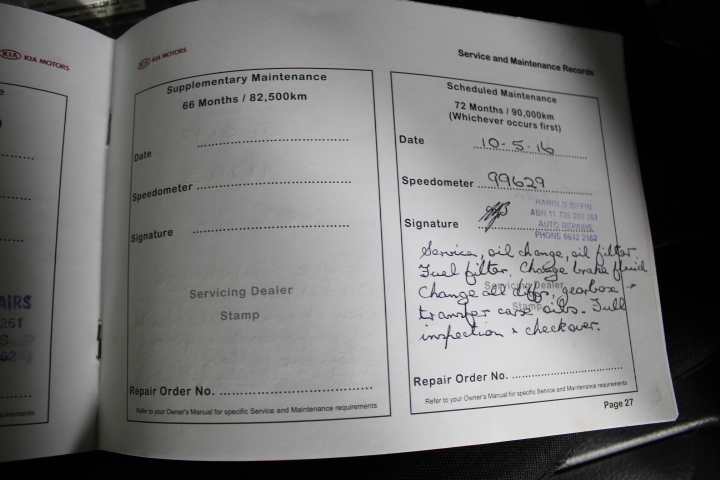 KIA KIA MOTORS
AIRS
261
S
62
requirements
KIA KIA MOTORS
Supplementary Maintenance
66 Months / 82,500km
Date
Speedometer
Signature
Servicing Dealer
Stamp
Repair Order No.
Refer to your Owner's Manual for specific Service and Maintenance requirements
Service and Maintenance Records
Scheduled Maintenance
72 Months / 90,000km
(Whichever occurs first)
Date 10.5.16
Speedometer 99629
Signature
HAROLD
AUTO REPAIRS
PHONE 6642 2162
Service, oil change, oil filter
Fuel filter. Change brake fluid
Change all diffs, gearbox +
transfer case oils. Full
inspection & checkover.
Servicing Dealer
Stamp
Repair Order No.
Refer to your Owner's Manual for specific Service and Maintenance requirements
Page 27